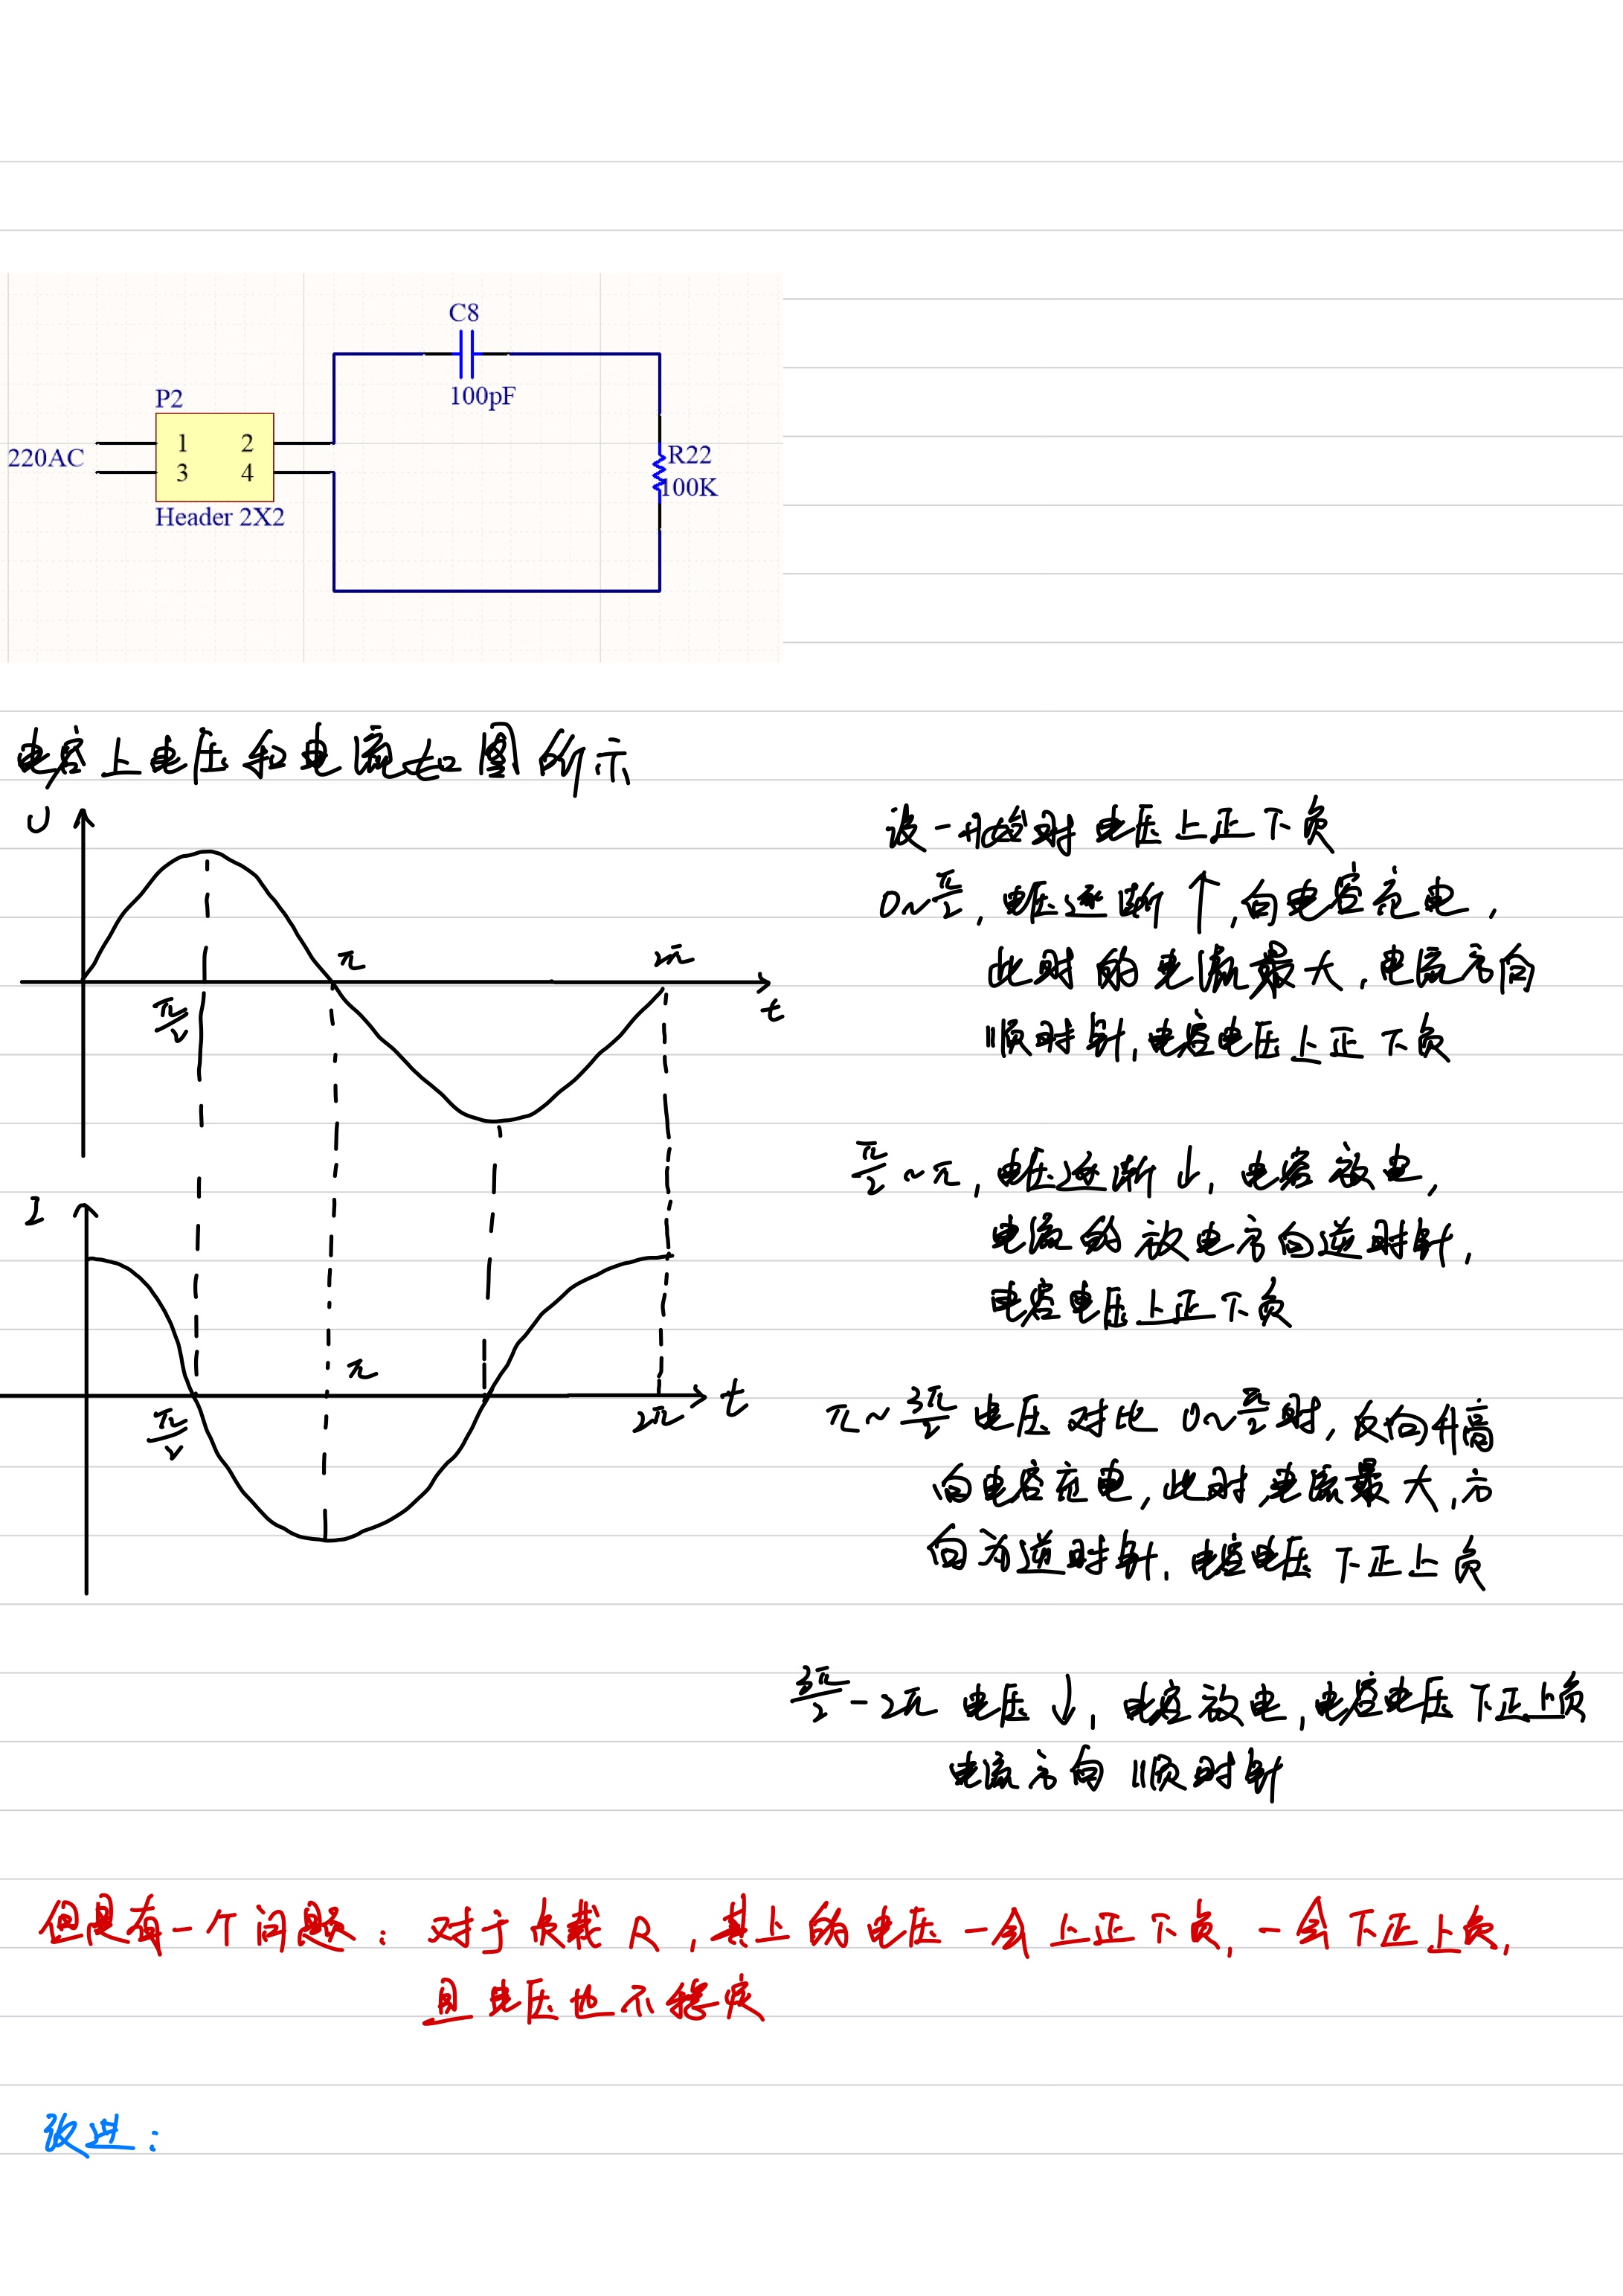 C8
100pF
P2
1 2
220AC
3 4
Header 2X2
R22
100K
电容上电压和电流如图所示
U
π
2π
π/2
t
I
π
π/2
2π
t
设一开始时电压上正下负
0~π/2, 电压逐渐↑, 向电容充电,
此时的电流最大, 电流方向
顺时针, 电容电压上正下负
π/2~π, 电压逐渐↓, 电容放电,
电流的放电方向逆时针,
电容电压上正下负
π~3π/2 电压对比 0~π/2时, 反向升高
向电容充电, 此时电流最大, 方
向为逆时针, 电容电压下正上负
3π/2-2π 电压↓, 电容放电, 电容电压下正上负
电流方向顺时针
但是有一个问题: 对于负载R, 其上的电压一会上正下负, 一会下正上负,
且电压也不稳定
改进: